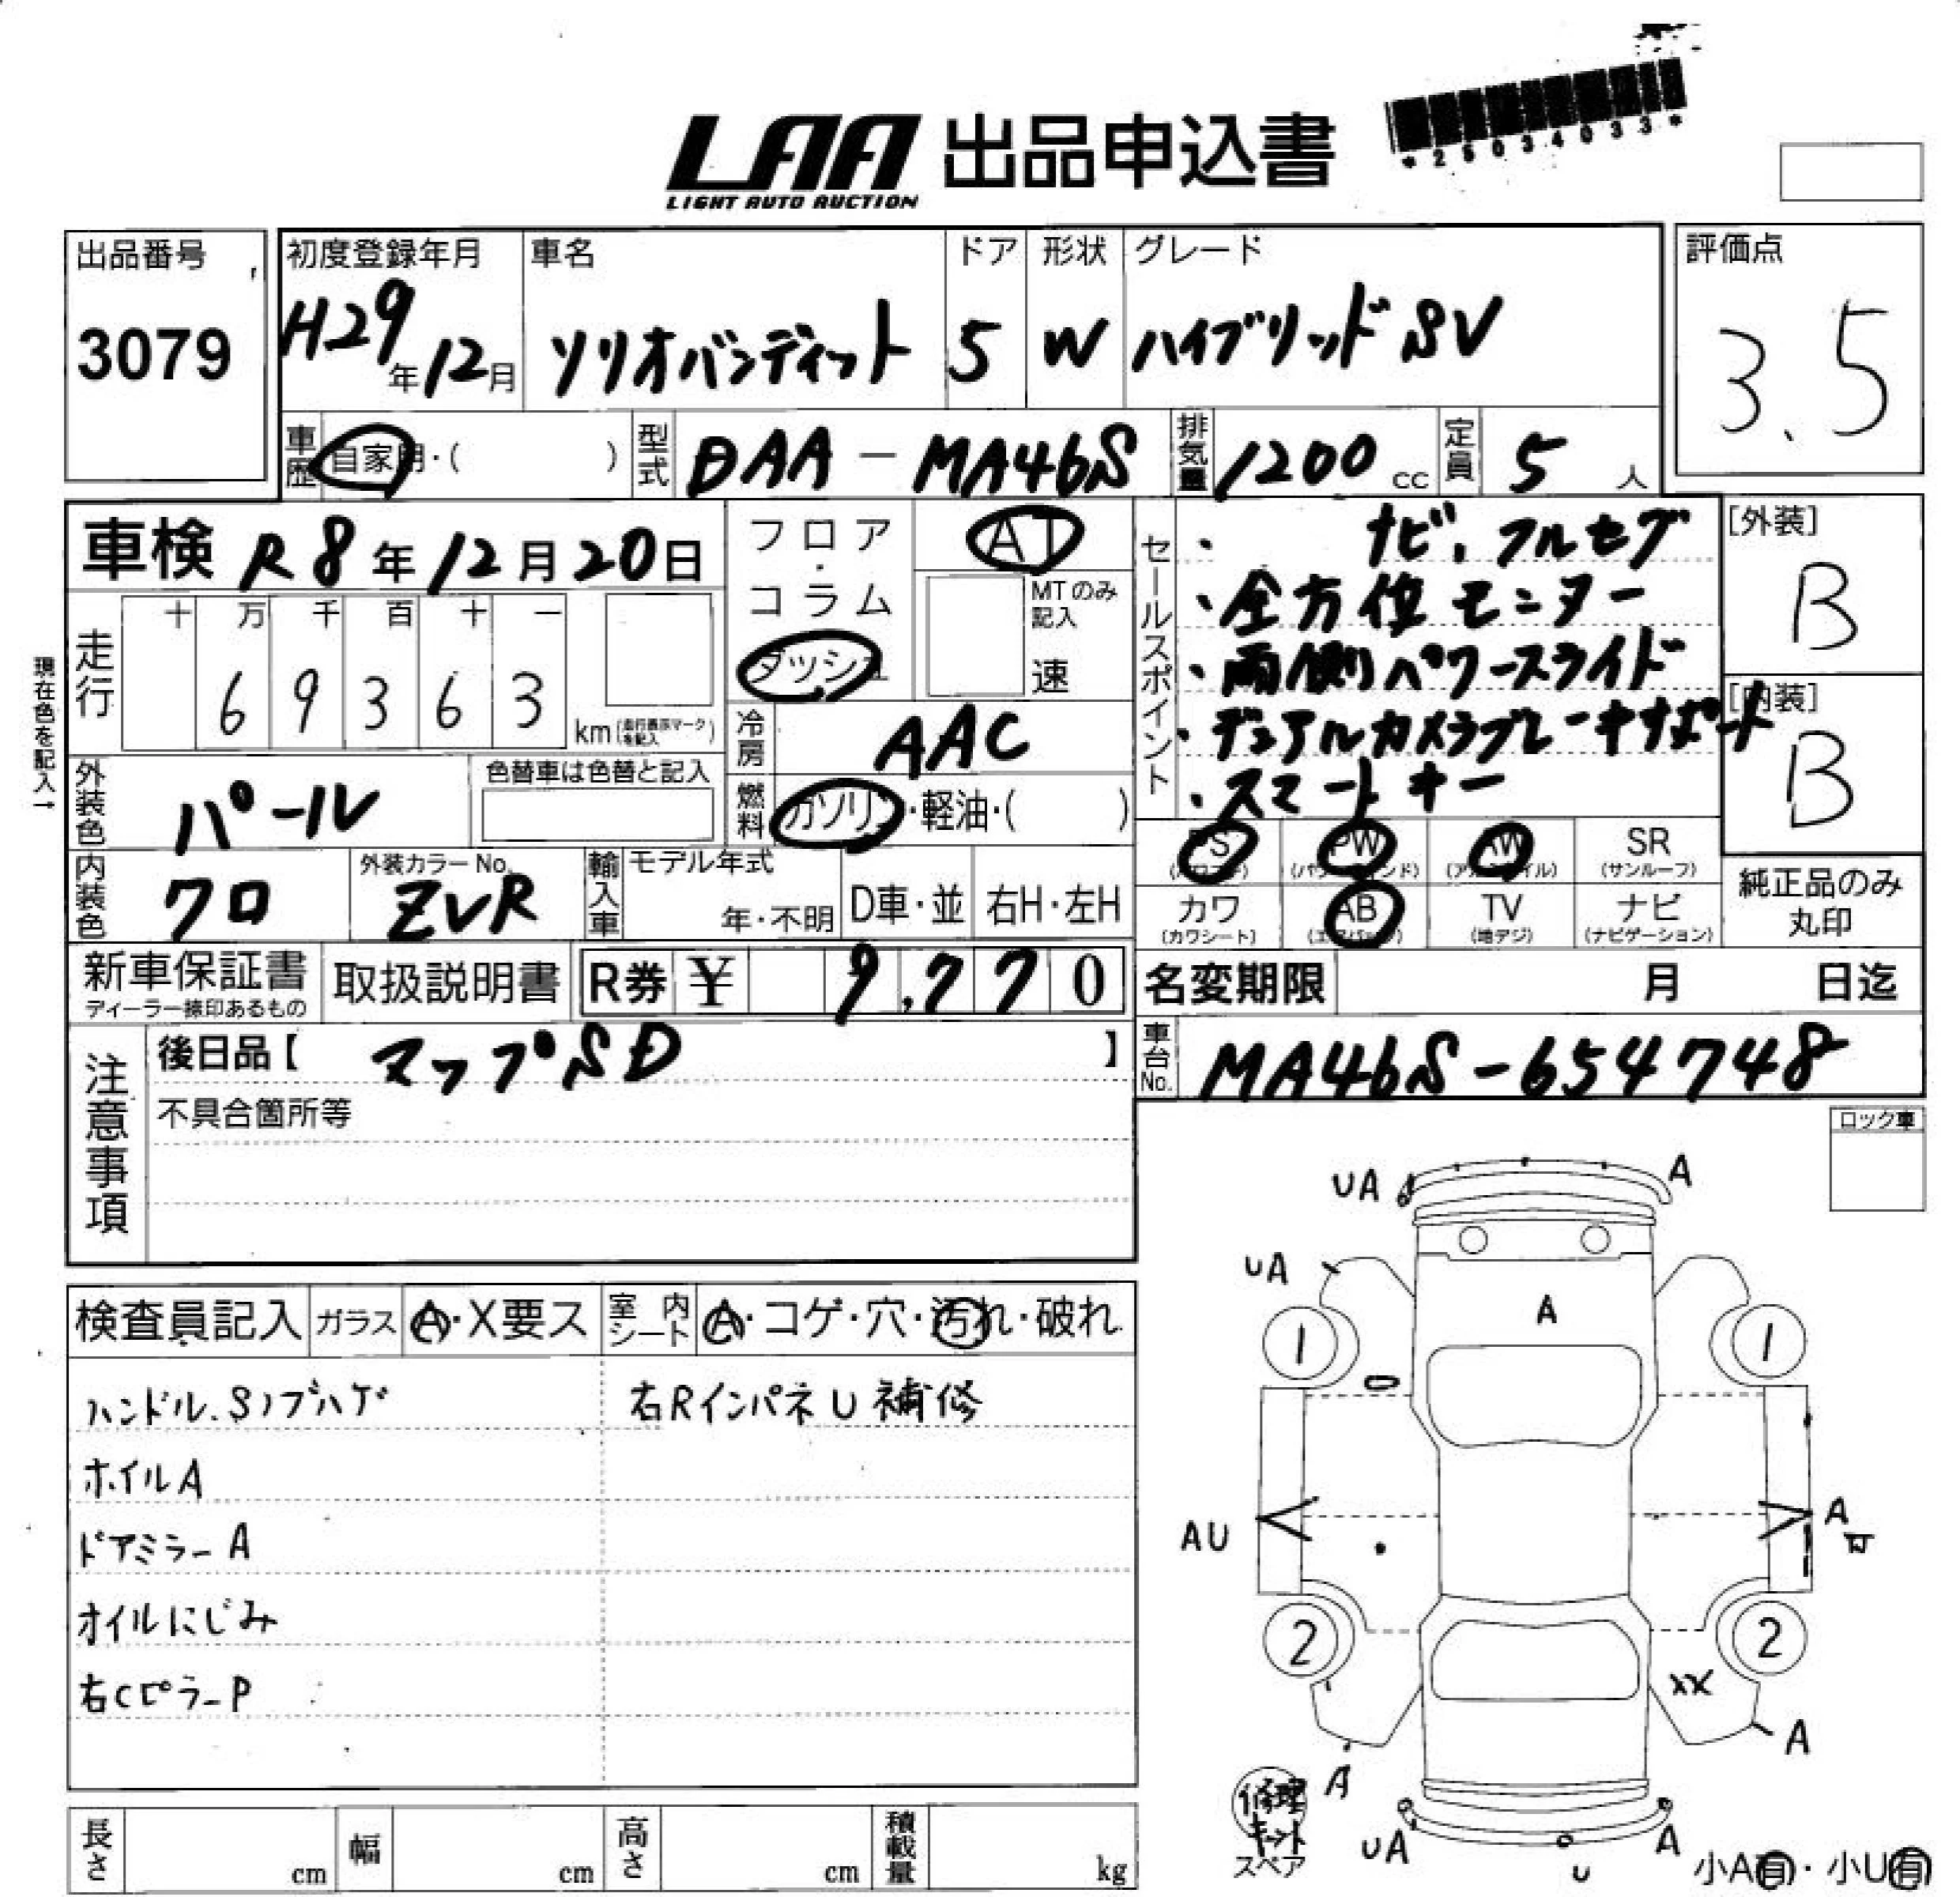 LAA 出品申込書
LIGHT AUTO AUCTION
*25034033*
出品番号
3079
初度登録年月
H29年12月
車名
ソリオバンディット
ドア
5
形状
W
グレード
ハイブリッドSV
評価点
3.5
車歴
自家用・( )
型式
DAA-MA46S
排気量
1200cc
定員
5人
車検 R8年12月20日
フロア・コラム
ダッシュ
AT
MTのみ記入
速
セールスポイント
・ナビ、フルセグ
・全方位モニター
・両側パワースライド
・デュアルカメラブレーキサポート
・スマートキー
[外装]
B
[内装]
B
現在色を記入→
走行
十 万 千 百 十 一
6 9 3 6 3
km(走行表示マークを記入)
冷房
AAC
外装色
パール
色替車は色替と記入
燃料
ガソリン・軽油・( )
内装色
クロ
外装カラーNo.
ZVR
輸入車
モデル年式
年・不明
D車・並
右H・左H
PS PW AW SR
(パワステ) (パワーウインド) (アルミホイル) (サンルーフ)
カワ AB TV ナビ
(カワシート) (エアバッグ) (地デジ) (ナビゲーション)
純正品のみ
丸印
新車保証書
ディーラー捺印あるもの
取扱説明書
R券 ¥ 9,770
名変期限 月 日迄
注意事項
後日品【 マップSD 】
不具合箇所等
車台No.
MA46S-654748
ロック車
検査員記入
ガラス
A・X要ス
室内シート
A・コゲ・穴・汚れ・破れ
ハンドル.Sノブハゲ
右RインパネU補修
ホイルA
ドアミラーA
オイルにじみ
右CピラーP
UA A
UA
A
1 1
AU A
2 2
XX
A A
UA U A
修理キット
スペア
小A有・小U有
長さ cm
幅 cm
高さ cm
積載量 kg